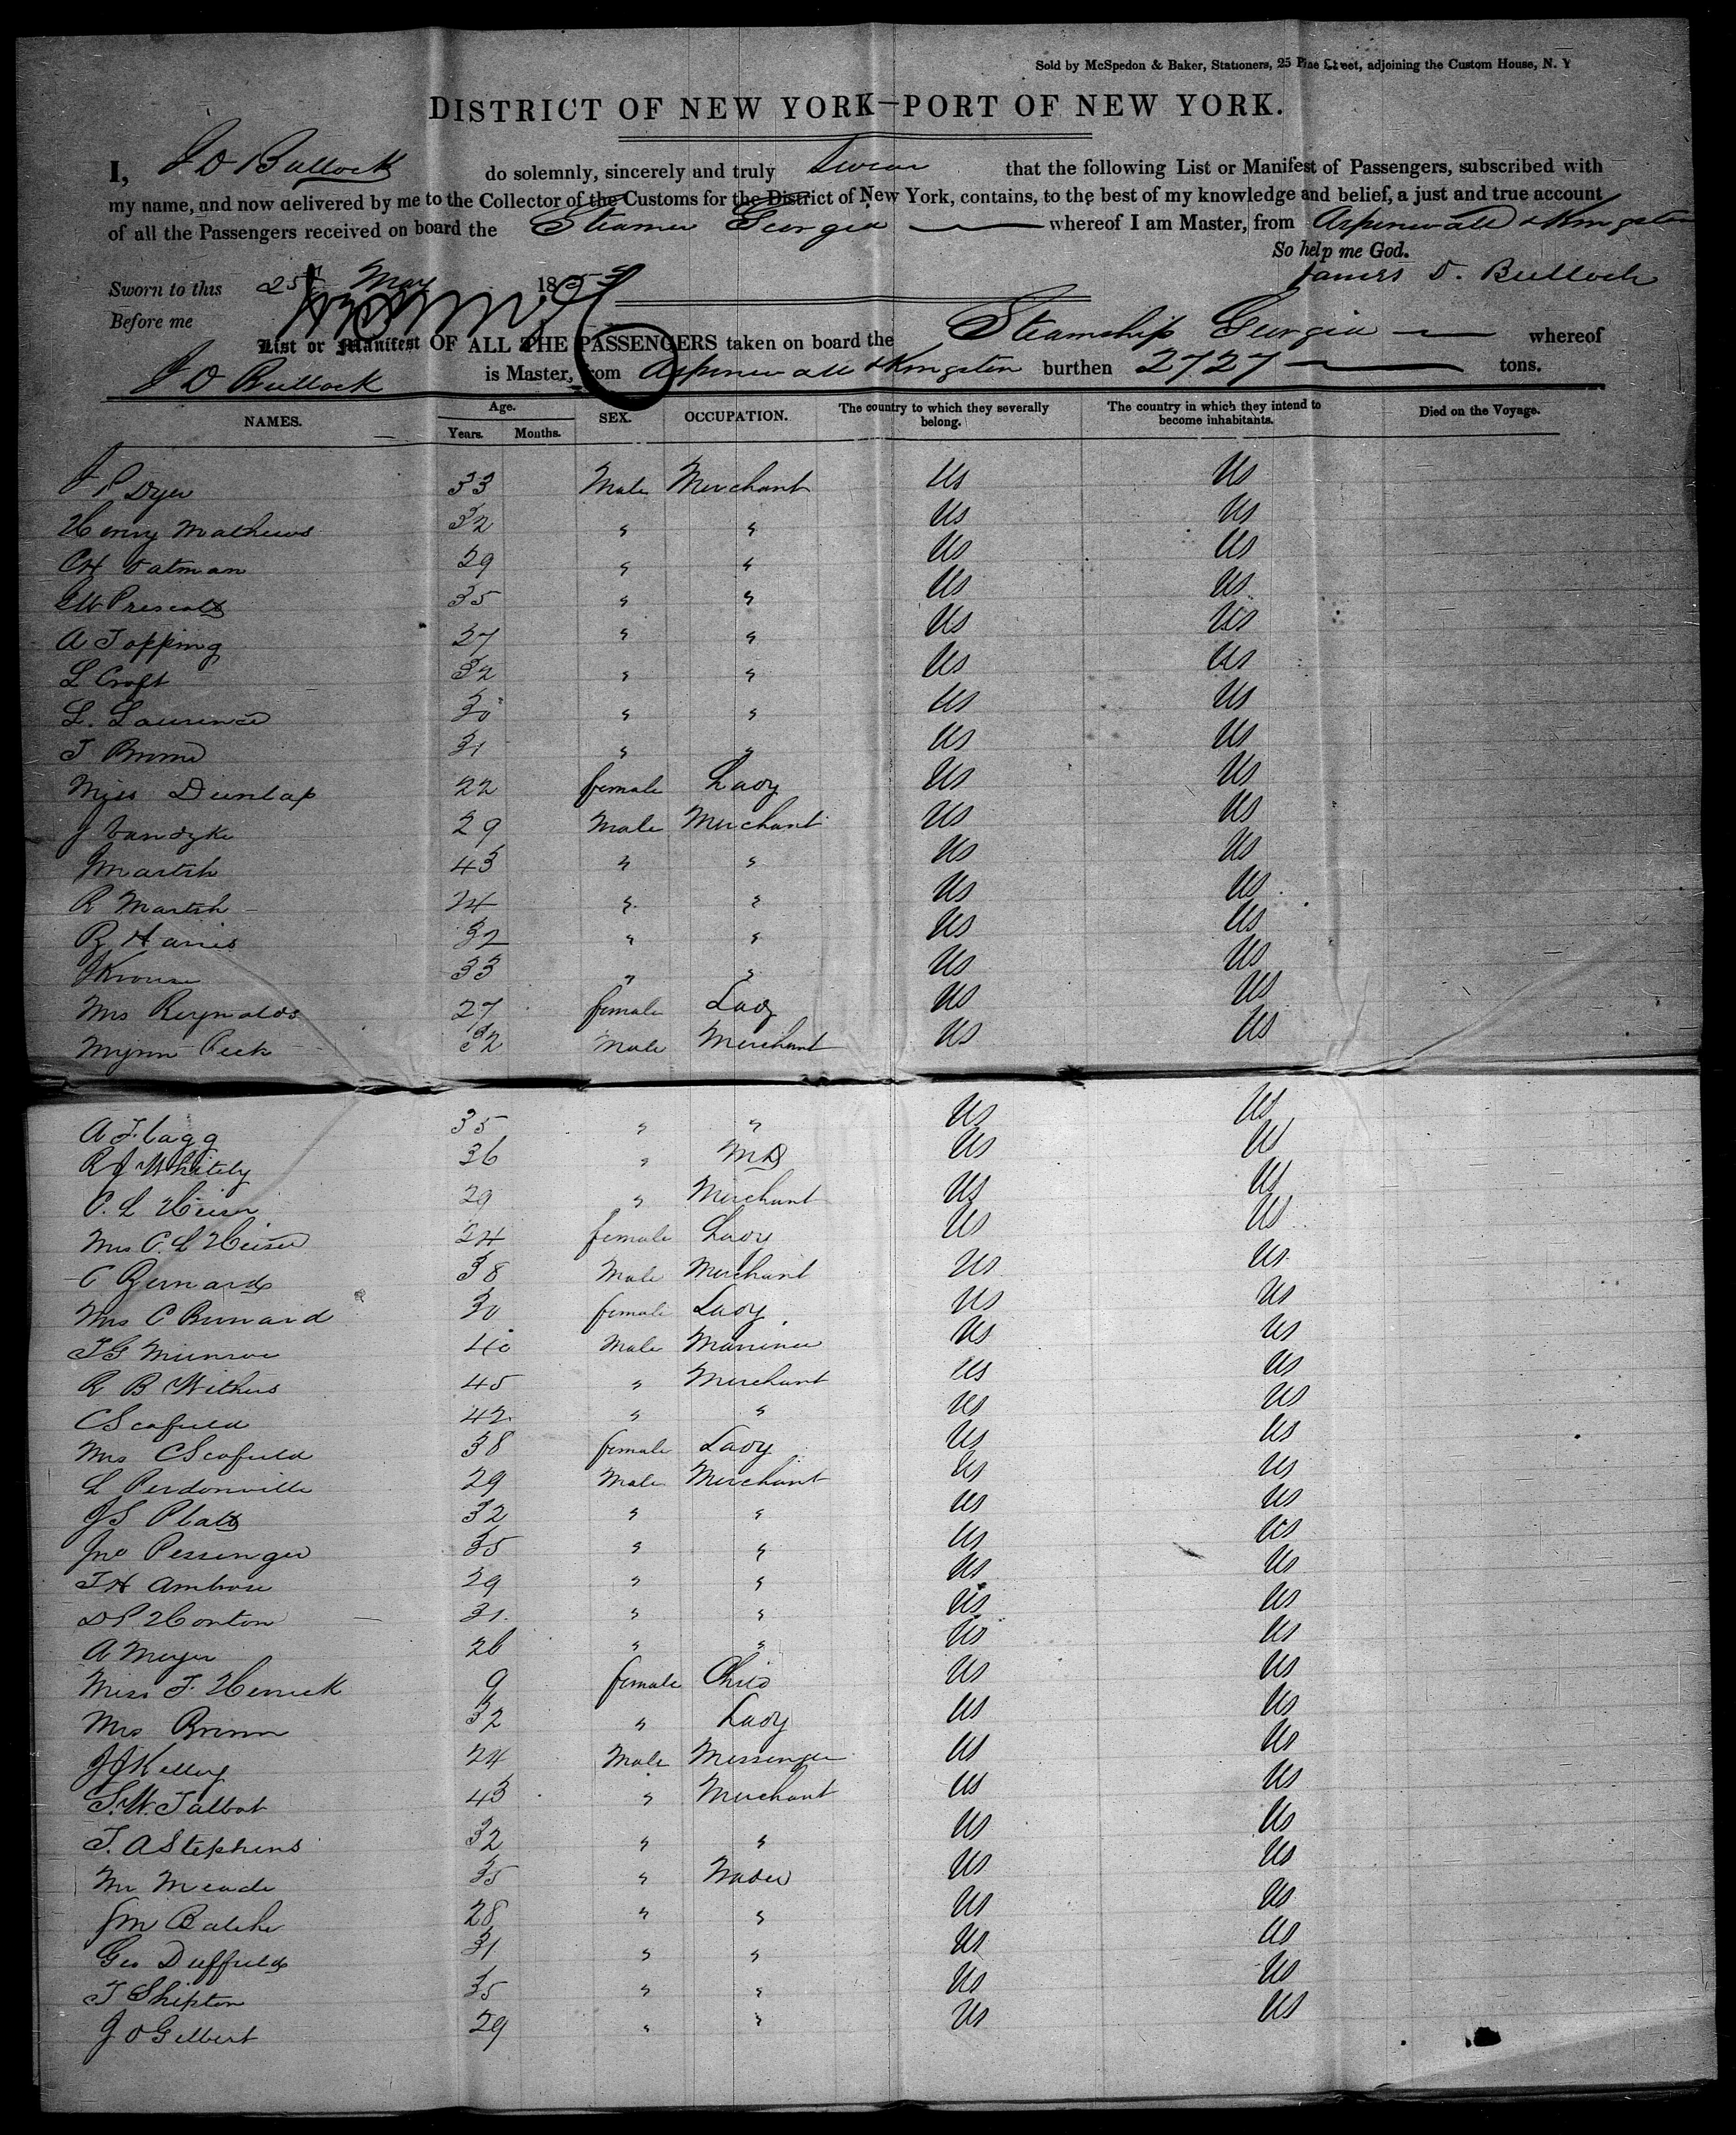 Sold by McSpedon & Baker, Stationers, 25 Pine Street, adjoining the Custom House, N. Y
DISTRICT OF NEW YORK—PORT OF NEW YORK.
I, J D Bullock do solemnly, sincerely and truly swear that the following List or Manifest of Passengers, subscribed with
my name, and now delivered by me to the Collector of the Customs for the District of New York, contains, to the best of my knowledge and belief, a just and true account
of all the Passengers received on board the Steamer Georgia whereof I am Master, from Aspinwall & Kingston
So help me God.
Sworn to this 25 May 185 James D. Bulloch
Before me
List or Manifest OF ALL THE PASSENGERS taken on board the Steamship Georgia whereof
J D Bullock is Master, from Aspinwall & Kingston burthen 2727 tons.
NAMES. Age. Years. Months. SEX. OCCUPATION. The country to which they severally belong. The country in which they intend to become inhabitants. Died on the Voyage.
J P Dyer 33 Male Merchant US US
Henry Mathews 32 " " US US
CH Oatman 29 " " US US
GW Prescott 35 " " US US
A Topping 27 " " US US
L Croft 32 " " US US
L. Laurence 30 " " US US
J 31 " " US US
Miss Dunlap 22 female Lady US US
J Vandyke 29 Male Merchant US US
43 " " US US
R 24 " " US US
B Harris 32 " " US US
J Krouse 33 " " US US
Mrs Reynolds 27 female Lady US US
Mynn Peck 32 Male Merchant US US
A Flagg 35 " " US US
R J Whitely 36 " MD US US
C. L Heiser 29 " Merchant US US
Mrs C. L Heiser 24 female Lady US US
C Bernard 38 Male Merchant US US
Mrs C Bernard 30 female Lady US US
J G Munroe 40 Male Marriner US US
R B Withers 45 " Merchant US US
C Scofield 42 " " US US
Mrs C Scofield 38 female Lady US US
L Perdonville 29 Male Merchant US US
J S Platt 32 " " US US
Jno Pessenger 35 " " US US
J H Ambrose 29 " " US US
D P Horton 31 " " US US
A Meyer 26 " " US US
Miss F. Herrick 9 female Child US US
Mrs 32 " Lady US US
J J Kelley 24 Male Messenger US US
S. W. Talbot 43 " Merchant US US
T. A Stephens 32 " " US US
Mr Meade 35 " US US
J M 28 " " US US
Geo Duffield 31 " " US US
T Shipton 35 " " US US
J O Gilbert 29 " " US US